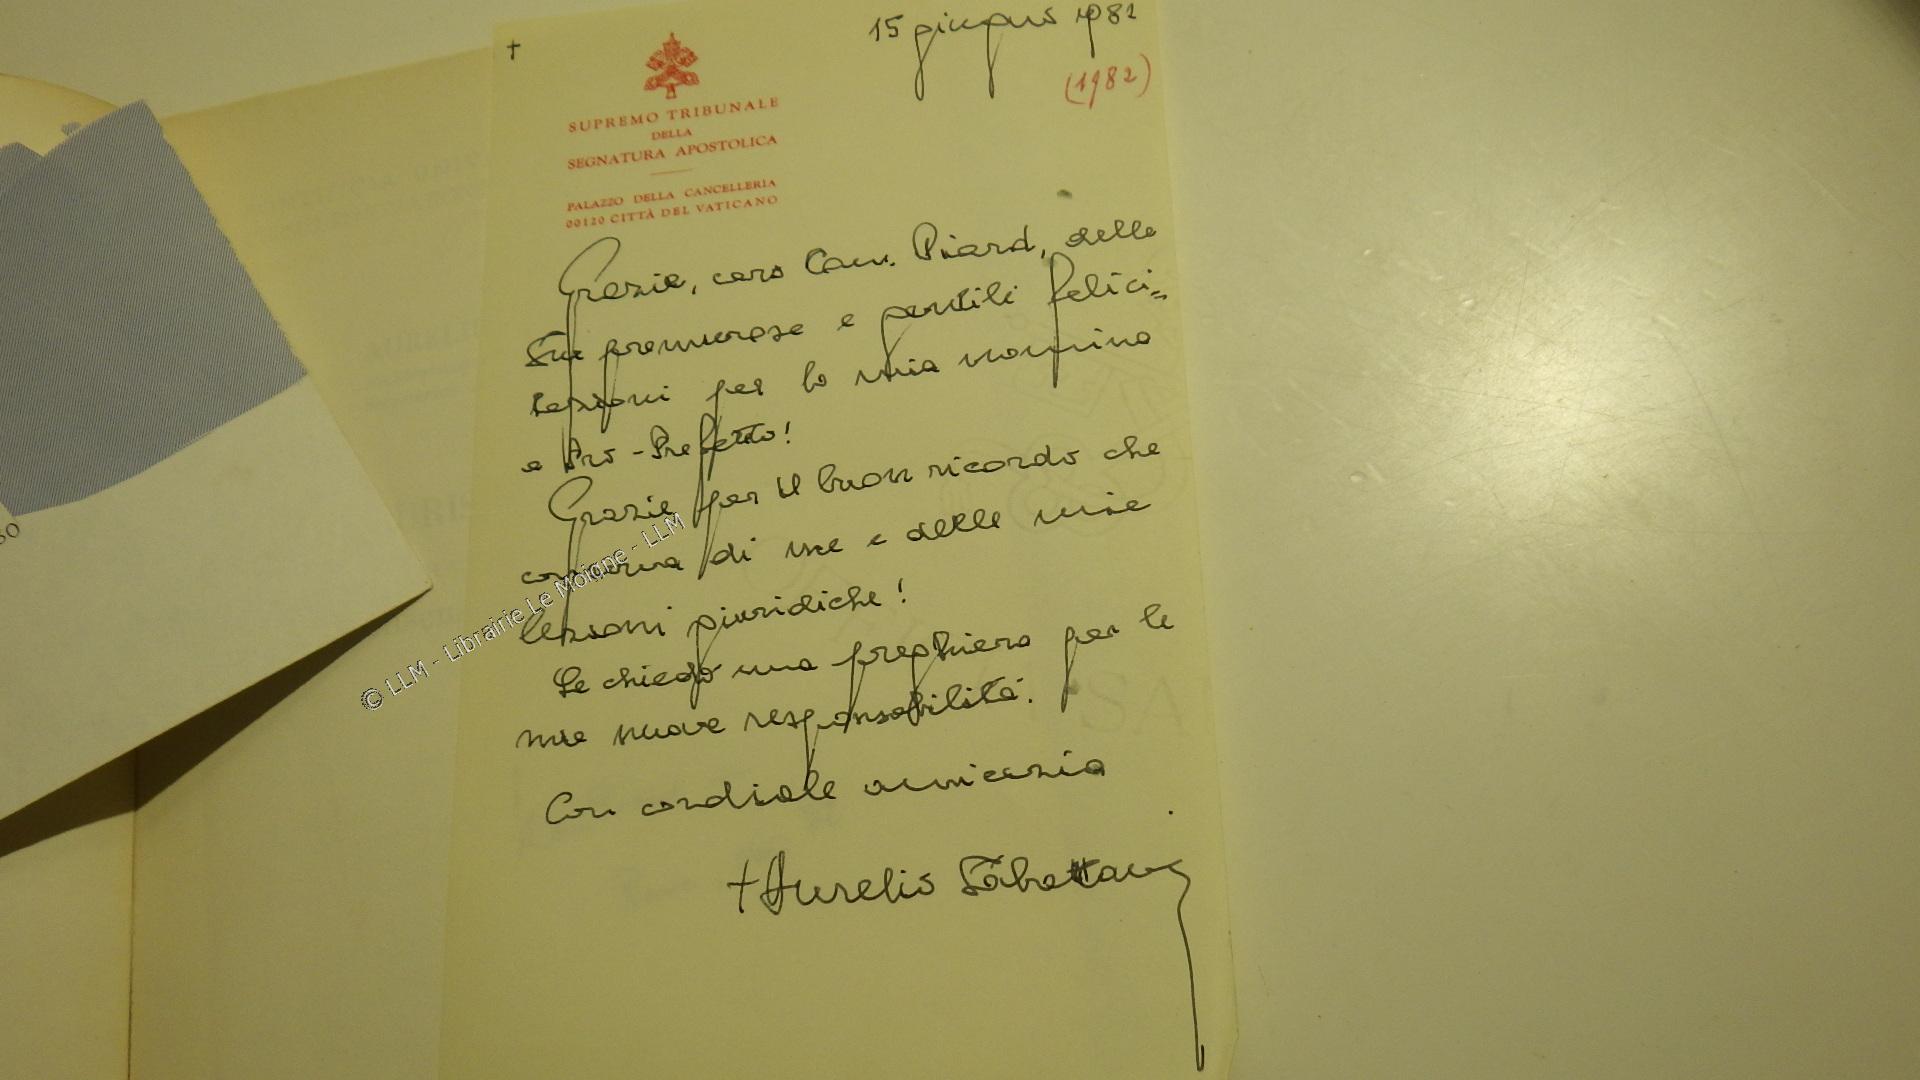 †
15 giugno 1982
(1982)
SUPREMO TRIBUNALE
DELLA
SEGNATURA APOSTOLICA
PALAZZO DELLA CANCELLERIA
00120 CITTÀ DEL VATICANO
Grazie, caro Can. Piard, delle
Sue premurose e gentili felici=
tazioni per la mia nomina
a Pro-Prefetto!
Grazie per il buon ricordo che
conserva di me e delle mie
lezioni giuridiche!
Le chiedo una preghiera per le
mie nuove responsabilità.
Con cordiale amicizia
† Aurelio Sabattani
© LLM - Librairie Le Moigne - LLM